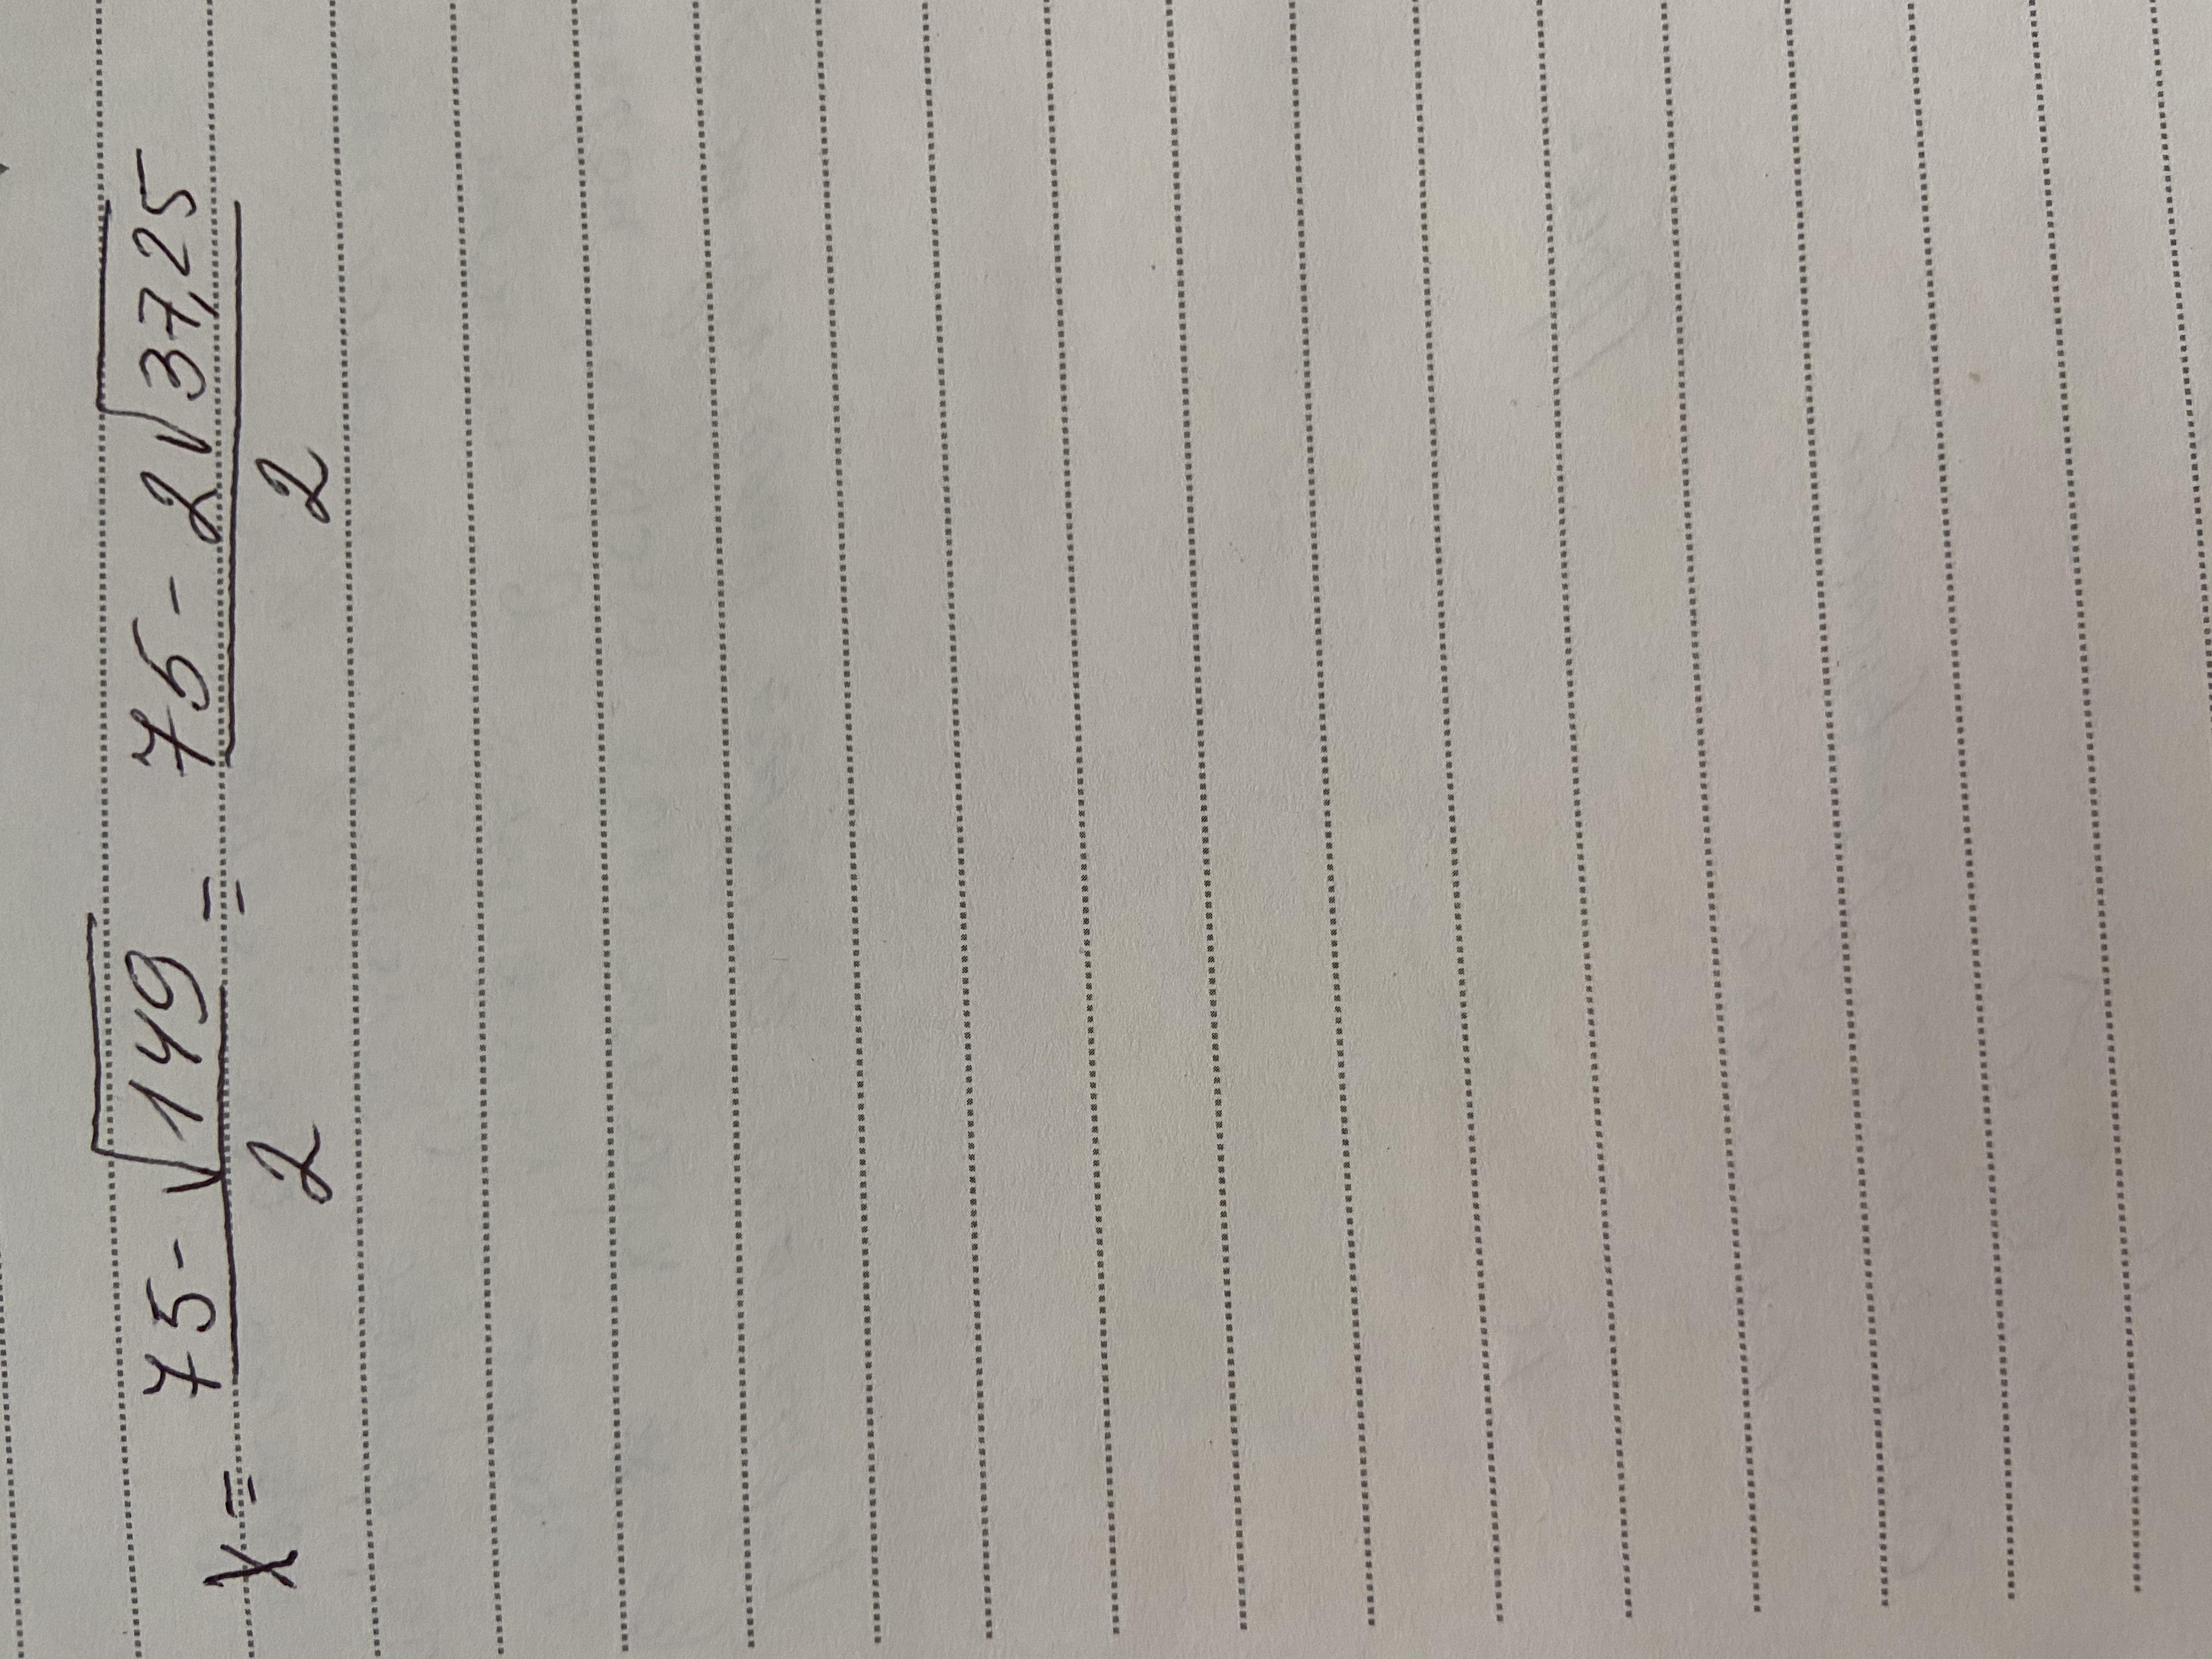 x = \frac{75 - \sqrt{149}}{2} = \frac{75 - 2\sqrt{37,25}}{2}